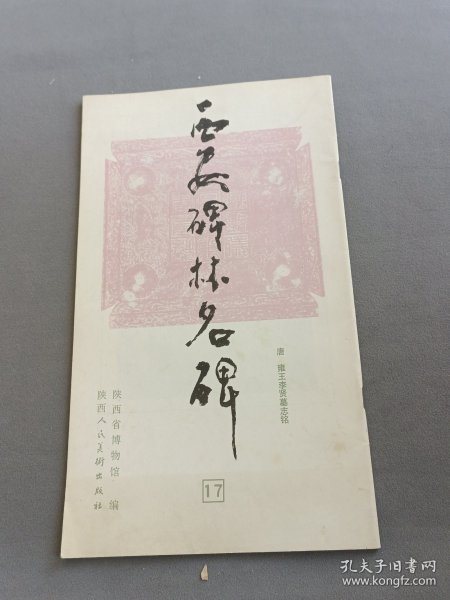 西安碑林名碑
唐 雍王李贤墓志铭
陕西省博物馆 编
陕西人民美術出版社
17
孔夫子旧书网
www.kongfz.com